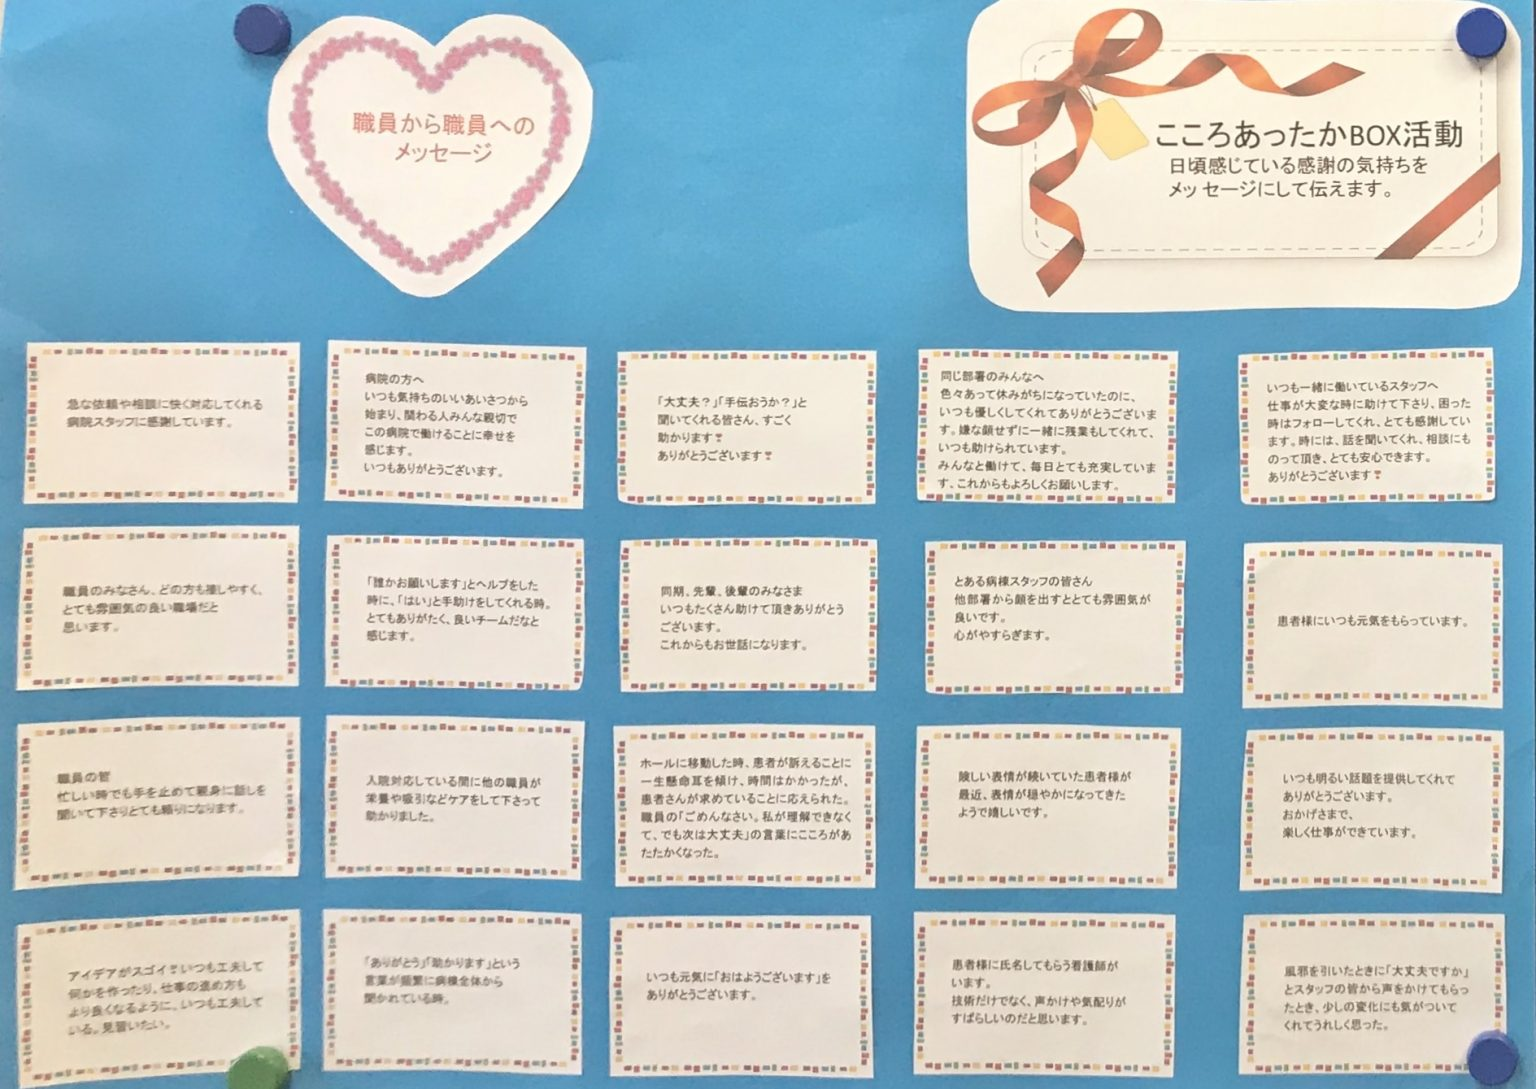 職員から職員への
メッセージ
こころあったかBOX活動
日頃感じている感謝の気持ちを
メッセージにして伝えます。
急な依頼や相談に快く対応してくれる
病院スタッフに感謝しています。
病院の方へ
いつも気持ちのいいあいさつから
始まり、関わる人みんな親切で
この病院で働けることに幸せを
感じます。
いつもありがとうございます。
「大丈夫？」「手伝おうか？」と
聞いてくれる皆さん、すごく
助かります❣
ありがとうございます❣
同じ部署のみんなへ
色々あって休みがちになっていたのに、
いつも優しくしてくれてありがとうございま
す。嫌な顔せずに一緒に残業もしてくれて、
いつも助けられています。
みんなと働けて、毎日とても充実していま
す、これからもよろしくお願いします。
いつも一緒に働いているスタッフへ
仕事が大変な時に助けて下さり、困った
時はフォローしてくれ、とても感謝してい
ます。時には、話を聞いてくれ、相談にも
のって頂き、とても安心できます。
ありがとうございます❣
職員のみなさん、どの方も接しやすく、
とても雰囲気の良い職場だと
思います。
「誰かお願いします」とヘルプをした
時に、「はい」と手助けをしてくれる時。
とてもありがたく、良いチームだなと
感じます。
同期、先輩、後輩のみなさま
いつもたくさん助けて頂きありがとう
ございます。
これからもお世話になります。
とある病棟スタッフの皆さん
他部署から顔を出すととても雰囲気が
良いです。
心がやすらぎます。
患者様にいつも元気をもらっています。
職員の皆
忙しい時でも手を止めて親身に話しを
聞いて下さりとても頼りになります。
入院対応している間に他の職員が
栄養や吸引などケアをして下さって
助かりました。
ホールに移動した時、患者が訴えることに
一生懸命耳を傾け、時間はかかったが、
患者さんが求めていることに応えられた。
職員の「ごめんなさい。私が理解できなく
て、でも次は大丈夫」の言葉にこころがあ
たたかくなった。
険しい表情が続いていた患者様が
最近、表情が穏やかになってきた
ようで嬉しいです。
いつも明るい話題を提供してくれて
ありがとうございます。
おかげさまで、
楽しく仕事ができています。
アイデアがスゴイ❣いつも工夫して
何かを作ったり、仕事の進め方も
より良くなるように、いつも工夫して
いる。見習いたい。
「ありがとう」「助かります」という
言葉が頻繁に病棟全体から
聞かれている時。
いつも元気に「おはようございます」を
ありがとうございます。
患者様に氏名してもらう看護師が
います。
技術だけでなく、声かけや気配りが
すばらしいのだと思います。
風邪を引いたときに「大丈夫ですか」
とスタッフの皆から声をかけてもらっ
たとき、少しの変化にも気がついて
くれてうれしく思った。